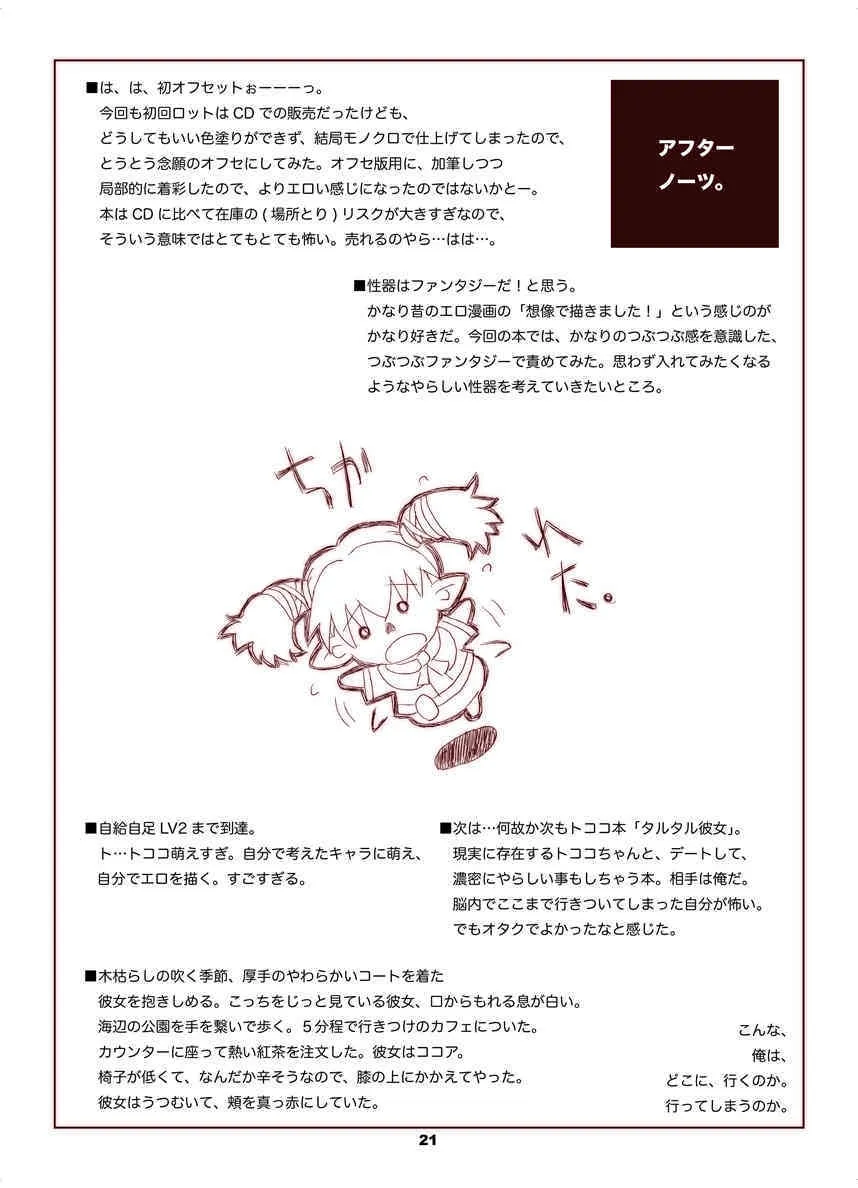 ■は、は、初オフセットぉーーーっ。
今回も初回ロットは CD での販売だったけども、
どうしてもいい色塗りができず、結局モノクロで仕上げてしまったので、
とうとう念願のオフセにしてみた。オフセ版用に、加筆しつつ
局部的に着彩したので、よりエロい感じになったのではないかとー。
本は CD に比べて在庫の ( 場所とり ) リスクが大きすぎなので、
そういう意味ではとてもとても怖い。売れるのやら…はは…。
アフター
ノーツ。
■性器はファンタジーだ！と思う。
かなり昔のエロ漫画の「想像で描きました！」という感じのが
かなり好きだ。今回の本では、かなりのつぶつぶ感を意識した、
つぶつぶファンタジーで責めてみた。思わず入れてみたくなる
ようなやらしい性器を考えていきたいところ。
ちか
れ
た。
■自給自足 LV2 まで到達。
ト…トココ萌えすぎ。自分で考えたキャラに萌え、
自分でエロを描く。すごすぎる。
■次は…何故か次もトココ本「タルタル彼女」。
現実に存在するトココちゃんと、デートして、
濃密にやらしい事もしちゃう本。相手は俺だ。
脳内でここまで行きついてしまった自分が怖い。
でもオタクでよかったなと感じた。
■木枯らしの吹く季節、厚手のやわらかいコートを着た
彼女を抱きしめる。こっちをじっと見ている彼女、口からもれる息が白い。
海辺の公園を手を繋いで歩く。５分程で行きつけのカフェについた。
カウンターに座って熱い紅茶を注文した。彼女はココア。
椅子が低くて、なんだか辛そうなので、膝の上にかかえてやった。
彼女はうつむいて、頬を真っ赤にしていた。
こんな、
俺は、
どこに、行くのか。
行ってしまうのか。
21